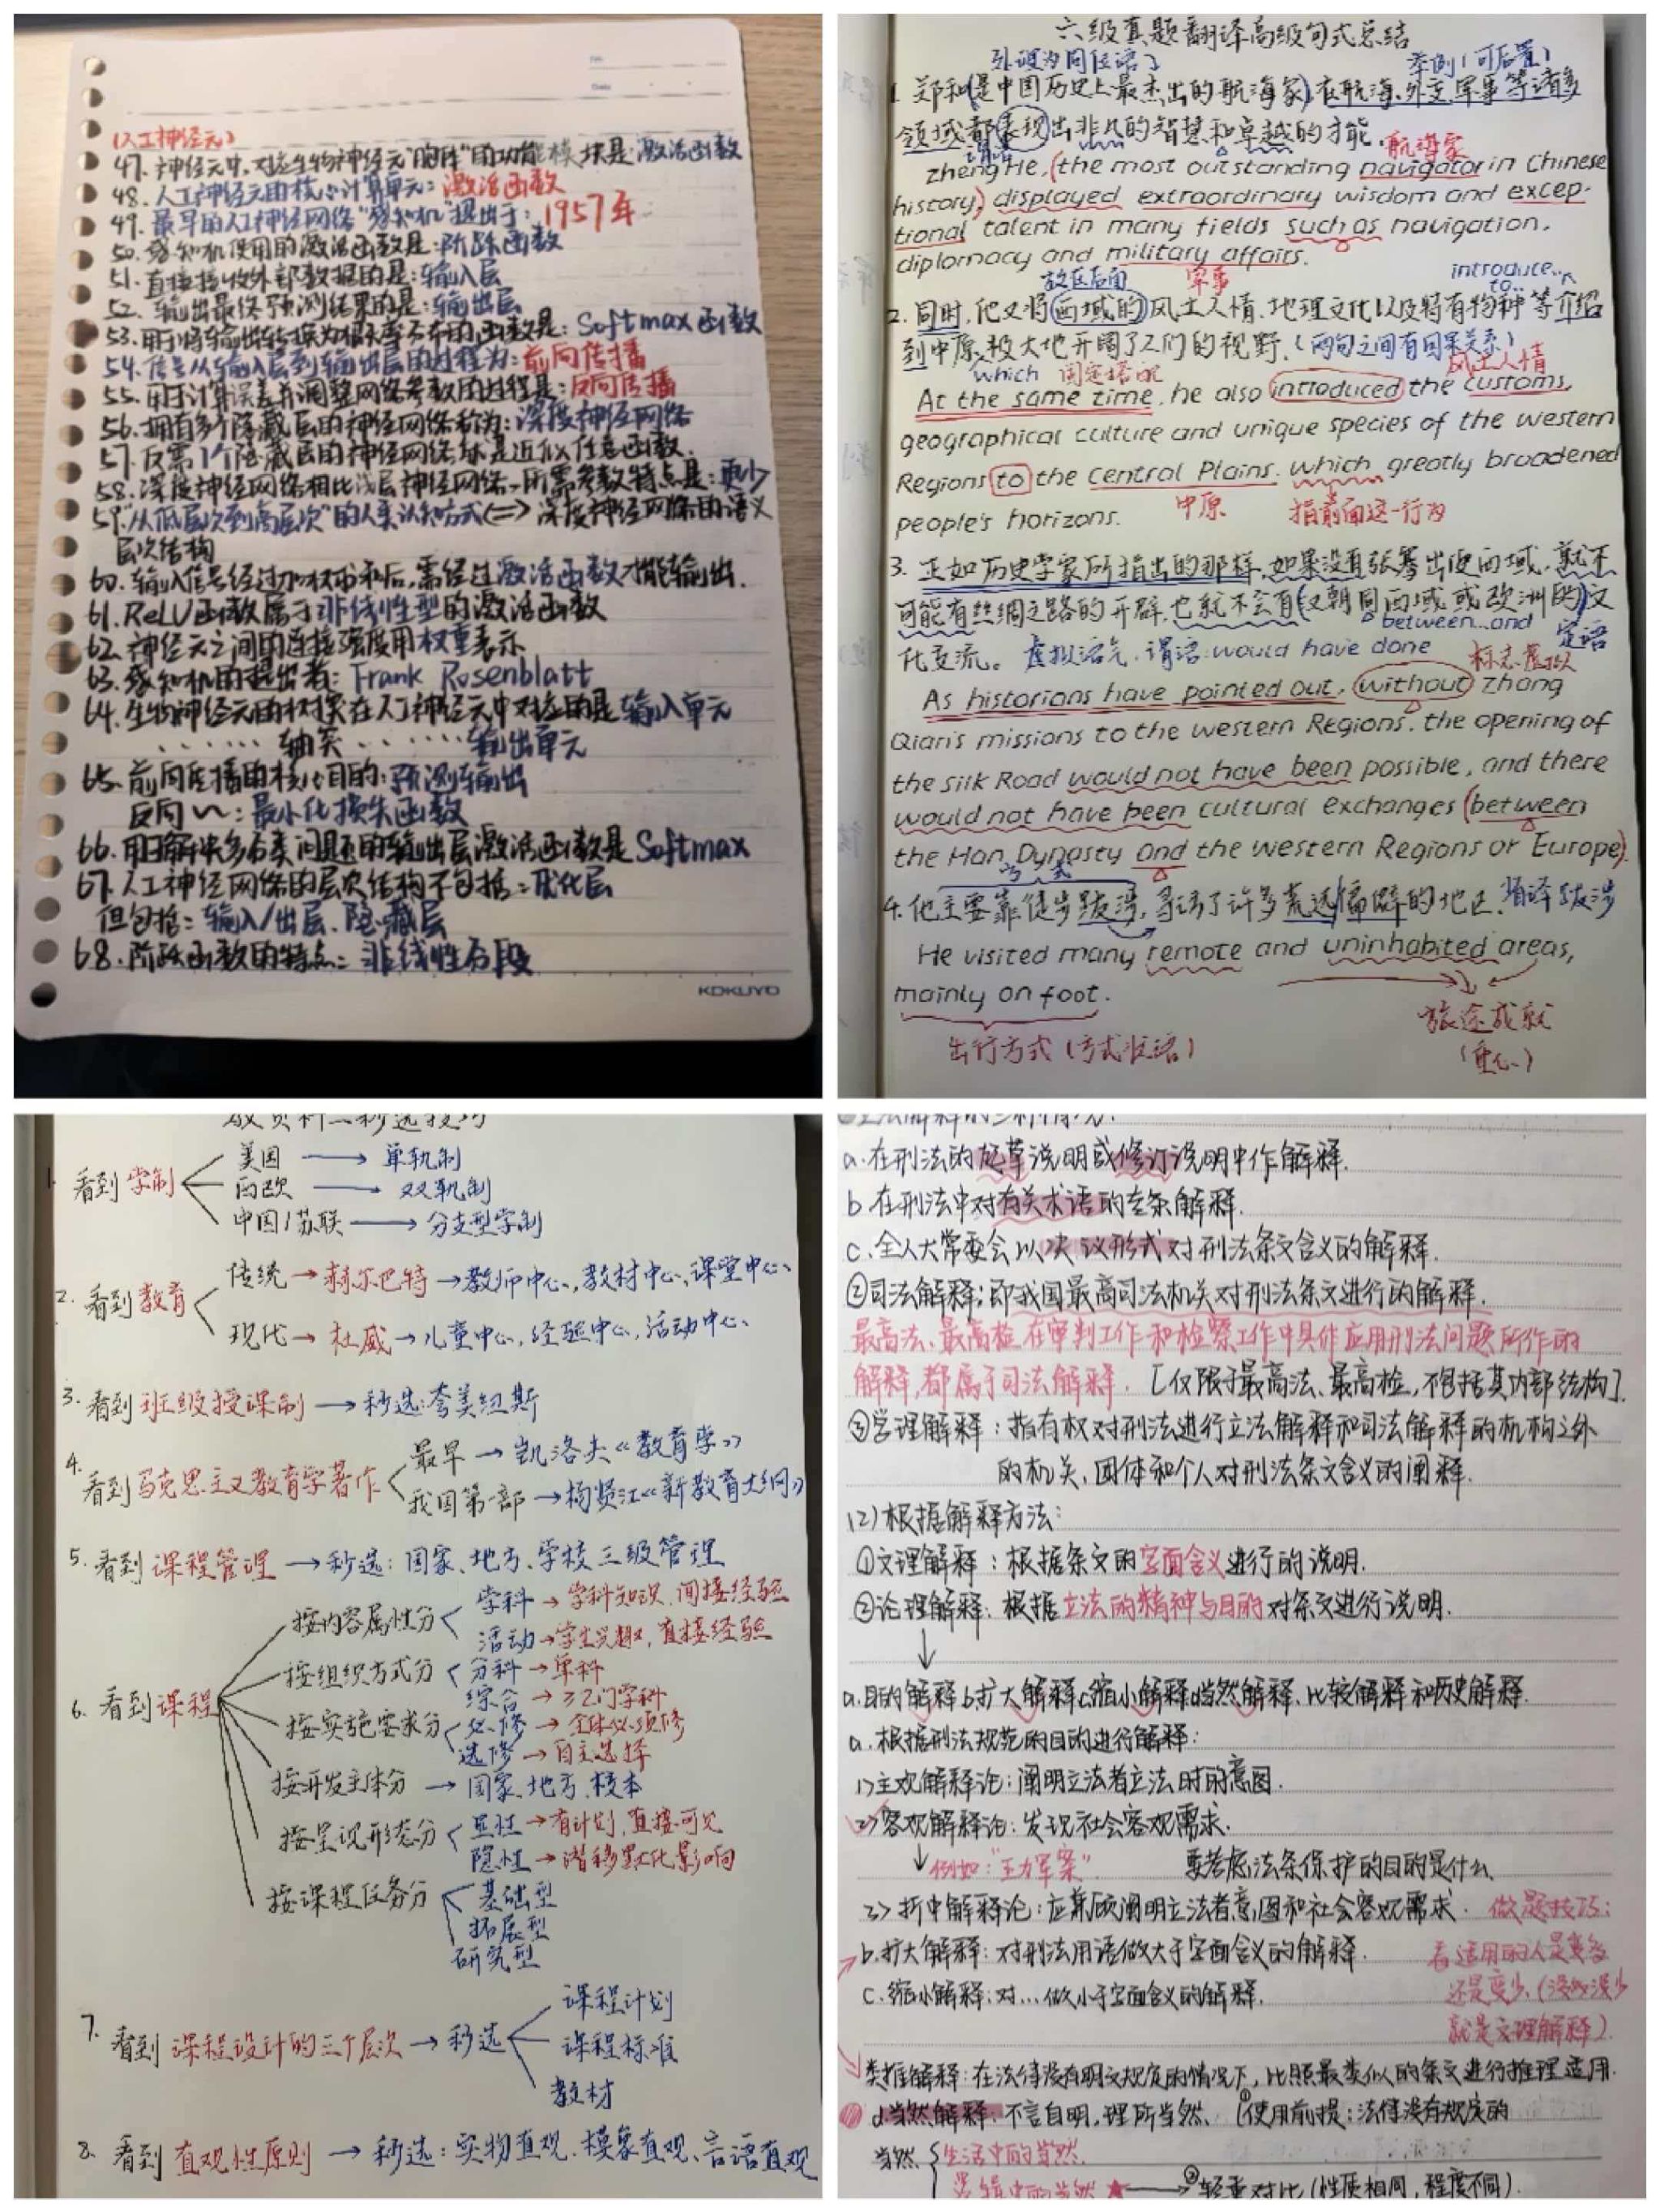 (人工神经元)
47. 神经元中,对应生物神经元"胞体"的功能模块是激活函数
48. 人工神经元的核心计算单元:激活函数
49. 最早的人工神经网络"感知机"提出于:1957年
50. 感知机使用的激活函数是:阶跃函数
51. 直接接收外部数据的是:输入层
52. 输出最终预测结果的是:输出层
53. 用于将输出转换为概率分布的函数是:Softmax函数
54. 信号从输入层到输出层的过程为:前向传播
55. 用于计算误差并调整网络参数的过程是:反向传播
56. 拥有多个隐藏层的神经网络称为:深度神经网络
57. 仅需1个隐藏层的神经网络就是近似任意函数.
58. 深度神经网络相比浅层神经网络,所需参数特点是:更少
59. "从低层次到高层次"的人类认知方式<=>深度神经网络的语义
层次结构
60. 输入信号经过加权求和后,需经过激活函数才能输出.
61. ReLU函数属于非线性型的激活函数
62. 神经元之间的连接强度用权重表示
63. 感知机的提出者:Frank Rosenblatt
64. 生物神经元的树突在人工神经元中对应的是输入单元
......轴突......输出单元
65. 前向传播的核心目的:预测输出
反向~:最小化损失函数
66. 用于解决多分类问题的输出层激活函数是Softmax
67. 人工神经网络的层次结构不包括:优化层
但包括:输入/出层.隐藏层
68. 阶跃函数的特点:非线性分段
KOKUYO
六级真题翻译高级句式总结
外设为同位语
举例(可后置)
1 郑和(是中国历史上最杰出的航海家),在航海、外交、军事等诸多
领域都表现出非凡的智慧和卓越的才能.
谓语
航海家
zheng He, (the most outstanding navigator in Chinese
history) displayed extraordinary wisdom and excep-
tional talent in many fields such as navigation,
diplomacy and military affairs.
放在后面 军事 introduce... to..
2. 同时,他又将西域的风土人情、地理文化以及特有物种等介绍
到中原,极大地开阔了人们的视野.(两句之间有因果关系)
which 固定搭配 风土人情
At the same time, he also introduced the customs,
geographical culture and unique species of the western
Regions to the Central Plains. which greatly broadened
people's horizons. 中原 指前面这一行为
3. 正如历史学家所指出的那样,如果没有张骞出使西域,就不
可能有丝绸之路的开辟,也就不会有(汉朝同西域或欧洲的)文
between...and 定语
化交流。 虚拟语气,谓语:would have done 标志虚拟
As historians have pointed out, without zhang
Qian's missions to the western Regions, the opening of
the silk Road would not have been possible, and there
would not have been cultural exchanges (between
the Han Dynasty and the western Regions or Europe).
方式
4. 他主要靠徒步跋涉,寻访了许多荒远偏僻的地区. 省译跋涉
He visited many remote and uninhabited areas,
mainly on foot.
旅途成就
出行方式(方式状语)
(重心)
教资科二秒选技巧
1. 看到学制
美国 → 单轨制
西欧 → 双轨制
中国/苏联 → 分支型学制
2. 看到教育
传统→赫尔巴特→教师中心,教材中心,课堂中心、
现代→杜威→儿童中心,经验中心,活动中心、
3. 看到班级授课制→秒选:夸美纽斯
4. 看到马克思主义教育学著作
最早→凯洛夫《教育学》
我国第一部→杨贤江《新教育大纲》
5. 看到课程管理→秒选:国家、地方、学校三级管理
6. 看到课程
按内容属性分
学科→学科知识,间接经验
活动→学生兴趣,直接经验
按组织方式分
分科→单科
综合→≥2门学科
按实施要求分
必修→全体必须修
选修→自主选择
按开发主体分→国家、地方、校本
按呈现形态分
显性→有计划,直接可见
隐性→潜移默化影响
按课程任务分
基础型
拓展型
研究型
7. 看到课程设计的三个层次→秒选
课程计划
课程标准
教材
8. 看到直观性原则→秒选:实物直观.模象直观、言语直观
a.在刑法的起草说明或修订说明中作解释.
b.在刑法中对有关术语的专条解释.
c.全人大常委会以决议形式对刑法条文含义的解释.
②司法解释:即我国最高司法机关对刑法条文进行的解释.
最高法、最高检在审判工作和检察工作中具体应用刑法问题所作的
解释,都属于司法解释. [仅限于最高法、最高检,不包括其内部结构].
③学理解释:指有权对刑法进行立法解释和司法解释的机构之外
的机关、团体和个人对刑法条文含义的阐释.
(2)根据解释方法:
①文理解释:根据条文的字面含义进行的说明.
②论理解释:根据立法的精神与目的对条文进行说明.
↓
a.目的解释b.扩大解释c缩小解释d当然解释、比较解释和历史解释.
a.根据刑法规范的目的进行解释:
1>主观解释论:阐明立法者立法时的意图.
2>客观解释论:发现社会客观需求.
↓例如:"王力军案" 要考虑法条保护的目的是什么
3>折中解释论:应兼顾阐明立法者意图和社会客观需求. 做题技巧:
b.扩大解释:对刑法用语做大于字面含义的解释. 看适用的人是变多
c.缩小解释:对...做小于字面含义的解释. 还是变少.(没多没少
就是文理解释).
类推解释:在法律没有明文规定的情况下,比照最类似的条文进行推理适用.
d.当然解释:不言自明,理所当然. (①使用前提:法律没有规定的
当然. {生活中的当然.
逻辑中的当然 ★→②轻重对比(性质相同,程度不同).